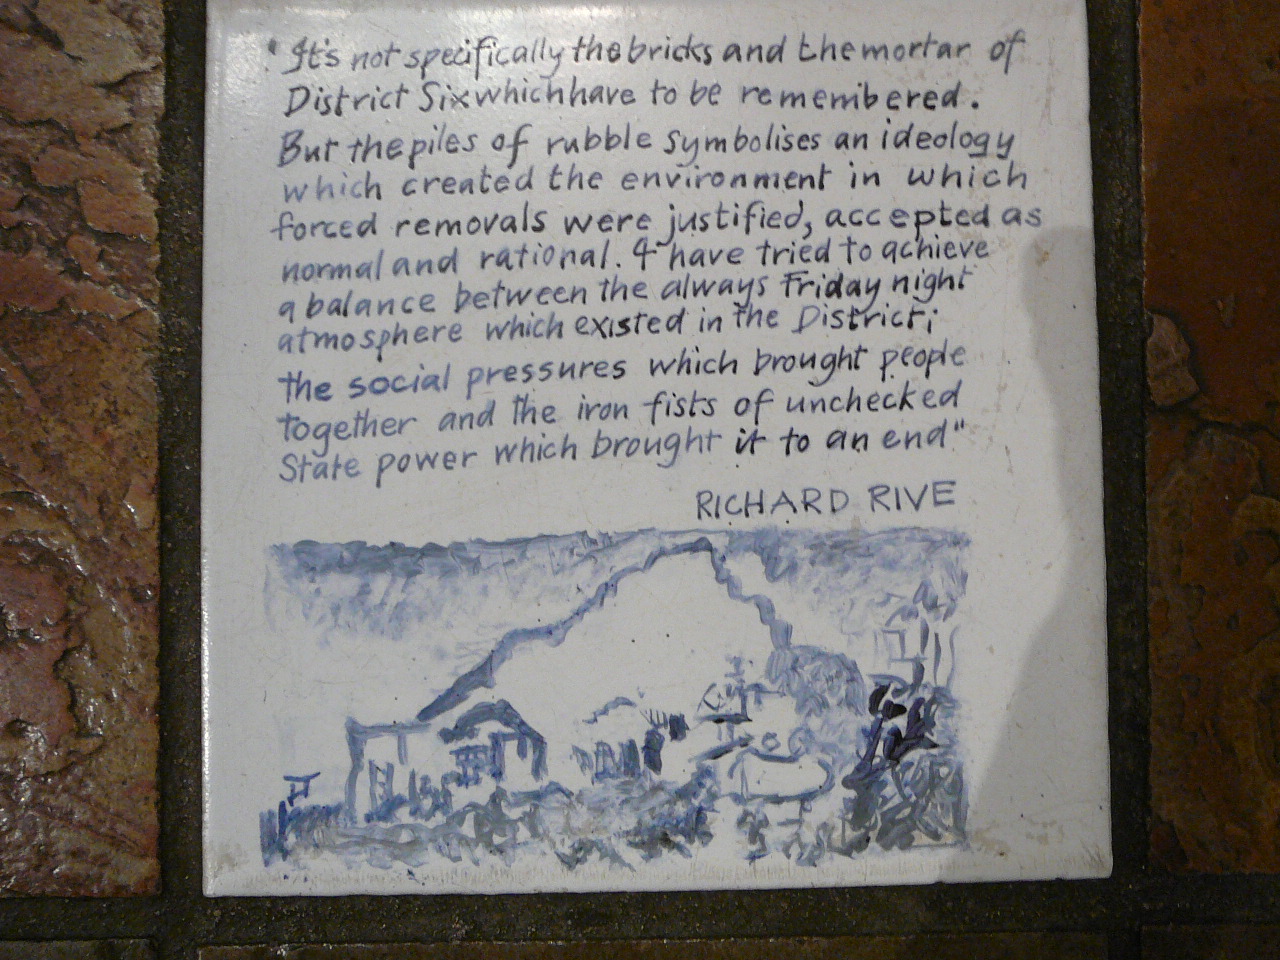 "It's not specifically the bricks and the mortar of
District Six which have to be remembered.
But the piles of rubble symbolises an ideology
which created the environment in which
forced removals were justified, accepted as
normal and rational. I have tried to achieve
a balance between the always Friday night
atmosphere which existed in the District;
the social pressures which brought people
together and the iron fists of unchecked
State power which brought it to an end"
RICHARD RIVE